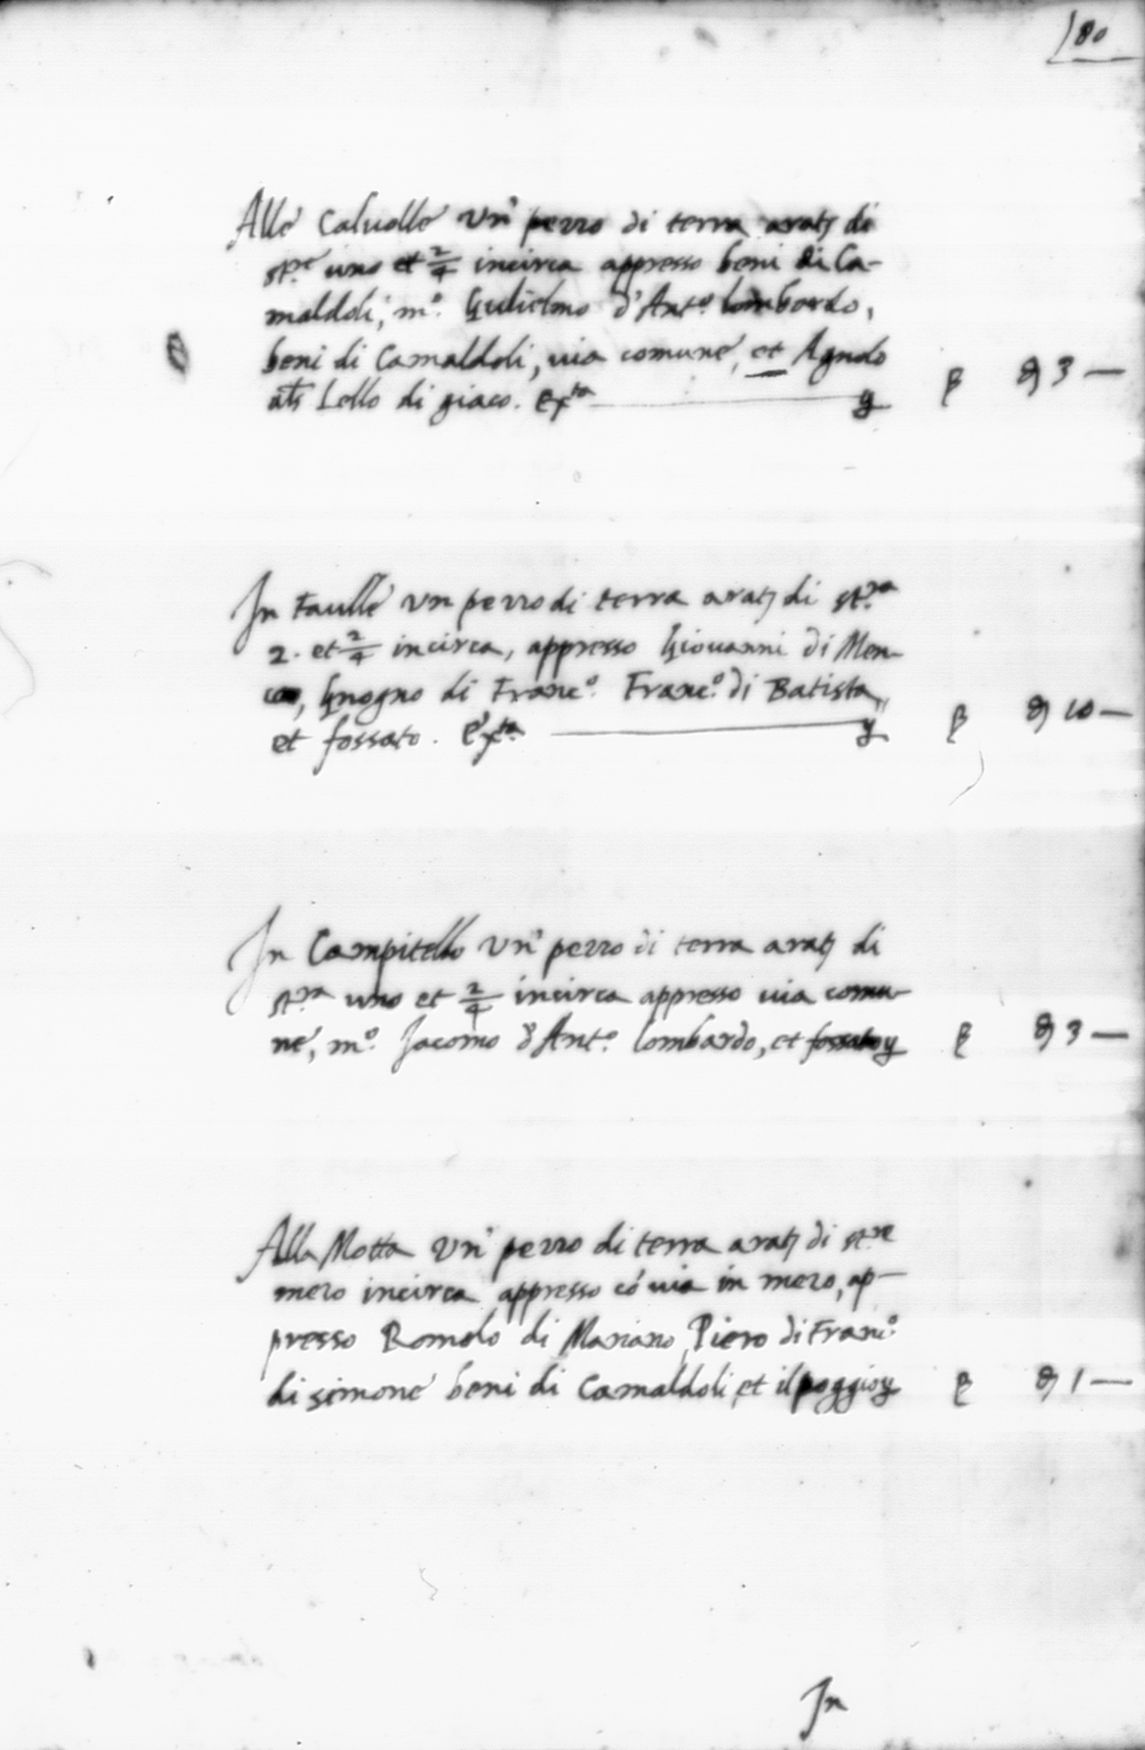 180
Alle Caluolle un' pezzo di terra arat. di
st.re uno et 2/4 incirca appresso beni di Ca-
maldoli, m.o Gulielmo d'Ant.o lombardo,
beni di Camaldoli, uia comune, et Agnolo
als Lello di giaco. Ex.ta β ↄ 3 —
In Faulle un pezzo di terra arat. di st.ra
2. et 2/4 incirca, appresso Giouanni di Men-
co, Gnogno di Franc.o Franc.o di Batista,
et fossato. Ex.ta β ↄ 10 —
In Campitello un' pezzo di terra arat. di
st.ra uno et 2/4 incirca appresso uia comu-
ne, m.o Jacomo d'Ant.o lombardo, et fossato β ↄ 3 —
Alla Motta un' pezzo di terra arat. di st.re
mezo incirca appresso có uia in mezo, ap-
presso Romolo di Mariano, Piero di Franc.o
di simone beni di Camaldoli, et il poggio β ↄ 1 —
In